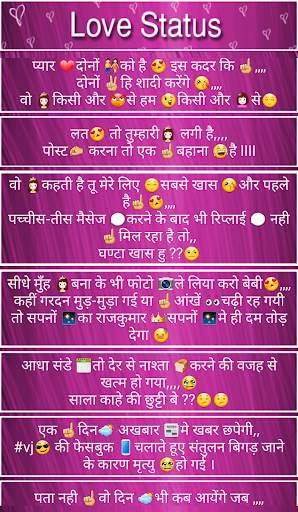 Love Status
प्यार ❤दोनों 👫को है 😍 इस कदर कि ☝,,,,
दोनों ✌हि शादी करेंगे 😘,,,,
वो 👸किसी और 😡से हम 😲किसी और 👸से😁
लत😍 तो तुम्हारी👸 लगी है,,,,
पोस्ट✍ करना तो एक ☝बहाना 😜है IIII
वो 👸कहती है तू मेरे लिए ☝सबसे खास 😘और पहले
है☝😘,,,,
पच्चीस-तीस मैसेज 💬करने के बाद भी रिप्लाई 💬 नही
☝मिल रहा है तो,,
घण्टा खास हु ??😏
सीधे मुँह 👸बना के भी फोटो 📷ले लिया करो बेबी😍,,,,
कहीं गरदन मुड़-मुड़ा गई या ☝आंखें 👀चढ़ी रह गयी
तो सपनों 🌃का राजकुमार 👑सपनों 🌃मे ही दम तोड़
देगा 😉
आधा संडे 🗓तो देर से नाश्ता 🍞करने की वजह से
खत्म हो गया,,,,😢
साला काहे की छुट्टी बे ??😏😕
एक ☝दिन💭 अखबार 📰मे खबर छपेगी,,
#vj😎 की फेसबुक 📱चलाते हुए संतुलन बिगड़ जाने
के कारण मृत्यु 😢हो गई ।
पता नही ☝वो दिन 💭भी कब आयेंगे जब ,,,,